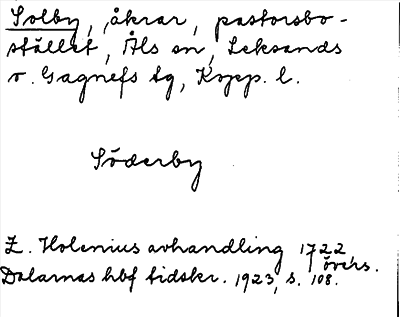 Solby, åkrar, pastorsbo-
stället, Åls sn, Leksands
o. Gagnefs tg, Kopp. l.
Söderby
Z. Holenius avhandling 1722
övers.
Dalarnas hbf tidskr. 1923, s. 108.